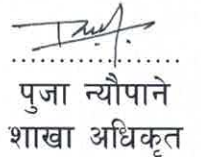 पुजा न्यौपाने
शाखा अधिकृत